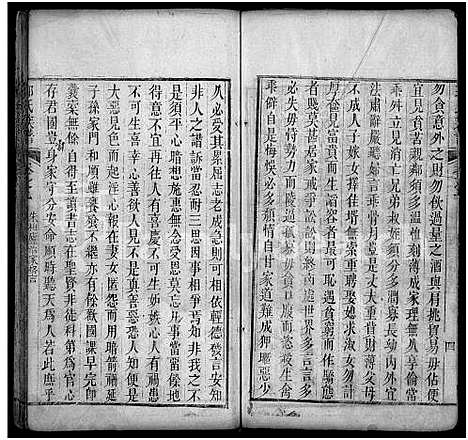 勿貪意外之財勿飲過量之酒與肩挑貿易毋佔便
宜見貧苦親鄰須多溫恤刻薄成家理無久享倫常
乖舛立見消亡兄弟叔姪須分多潤寡長幼內外宜
法肅辭嚴聽婦言乖骨肉豈是丈夫重資財薄父母
不成人子嫁女擇佳壻毋索重聘娶媳求淑女勿計
厚奩見富貴而生諂容者最可恥遇貧窮而作驕態
者賤莫甚居家戒爭訟訟則終凶處世戒多言言多
必失毋恃勢力而凌逼孤寡勿貪口腹而恣殺生禽
乖僻自是悔悞必多頹惰自甘家道難成狎暱惡少
久必受其累屈志老成急則可相依輕聽發言安知
非人之譖訴當忍耐三思因事相爭焉知非我之不
是須平心暗想施惠無念受恩莫忘凡事當留餘地
得意不宜再往人有喜慶不可生妬嫉心人有禍患
不可生喜幸心善欲人見不是真善惡恐人知便是
大惡見色而起淫心報在妻女匿怨而用暗箭禍延
子孫家門和順雖饔飧不繼亦有餘歡國課早完即
囊橐無餘自得至樂讀書志在聖賢非徒科第為官心
存君國豈計身家守分安命順時聽天為人若此庶乎